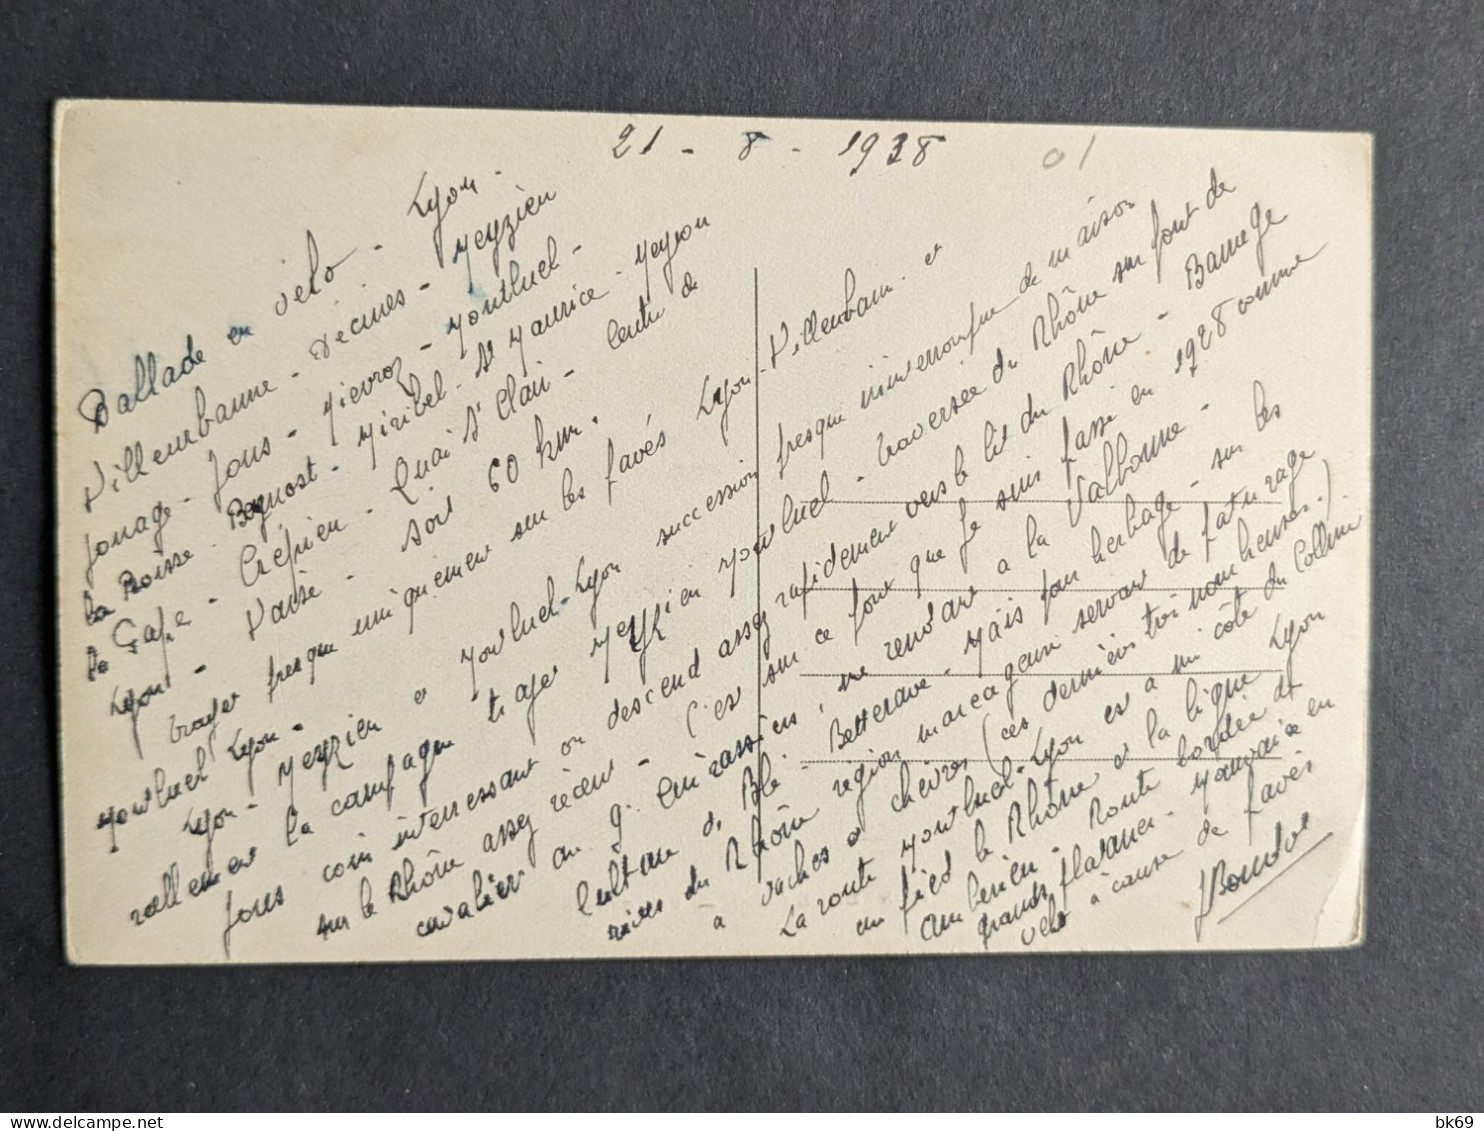 21 - 8 - 1938
01
Ballade en vélo - Lyon -
Villeurbanne - Décines - Meyzieu
Jonage - Jons - Nievroz - Montluel -
La Boisse - Beynost - Miribel - St Maurice - Neyron
La Pape - Crépieu - Quai St Clair - Centre de
Lyon - Vaise - Soit 60 km.
presque uniquement sur les pavés Lyon - Villeurbann. et
Montluel Lyon -
Lyon - Meyzieu et Montluel - Lyon succession presque ininterrompue de maison
la campagne Meyzieu Montluel - traversée du Rhône sur pont de
Jons coin interessant on descend assez rapidement vers le lit du Rhône - Barrage
sur le Rhône assez récent - C'est sur ce pont que je suis passé en 1928 comme
cavalier au 9 Cuirassiers, me rendant a la Valbonne -
Culture de Blé - Betterave - Maïs pour herbage - sur les
rives du Rhône région marécageuse servant de paturage
a vaches et chèvres (ces dernières très nombreuses.)
La route Montluel - Lyon est a mi côte du Colline
au pied le Rhône et la ligne Lyon
Amberieu - Route bordée de
grands platanes - Mauvaise en
vélo à cause de pavés